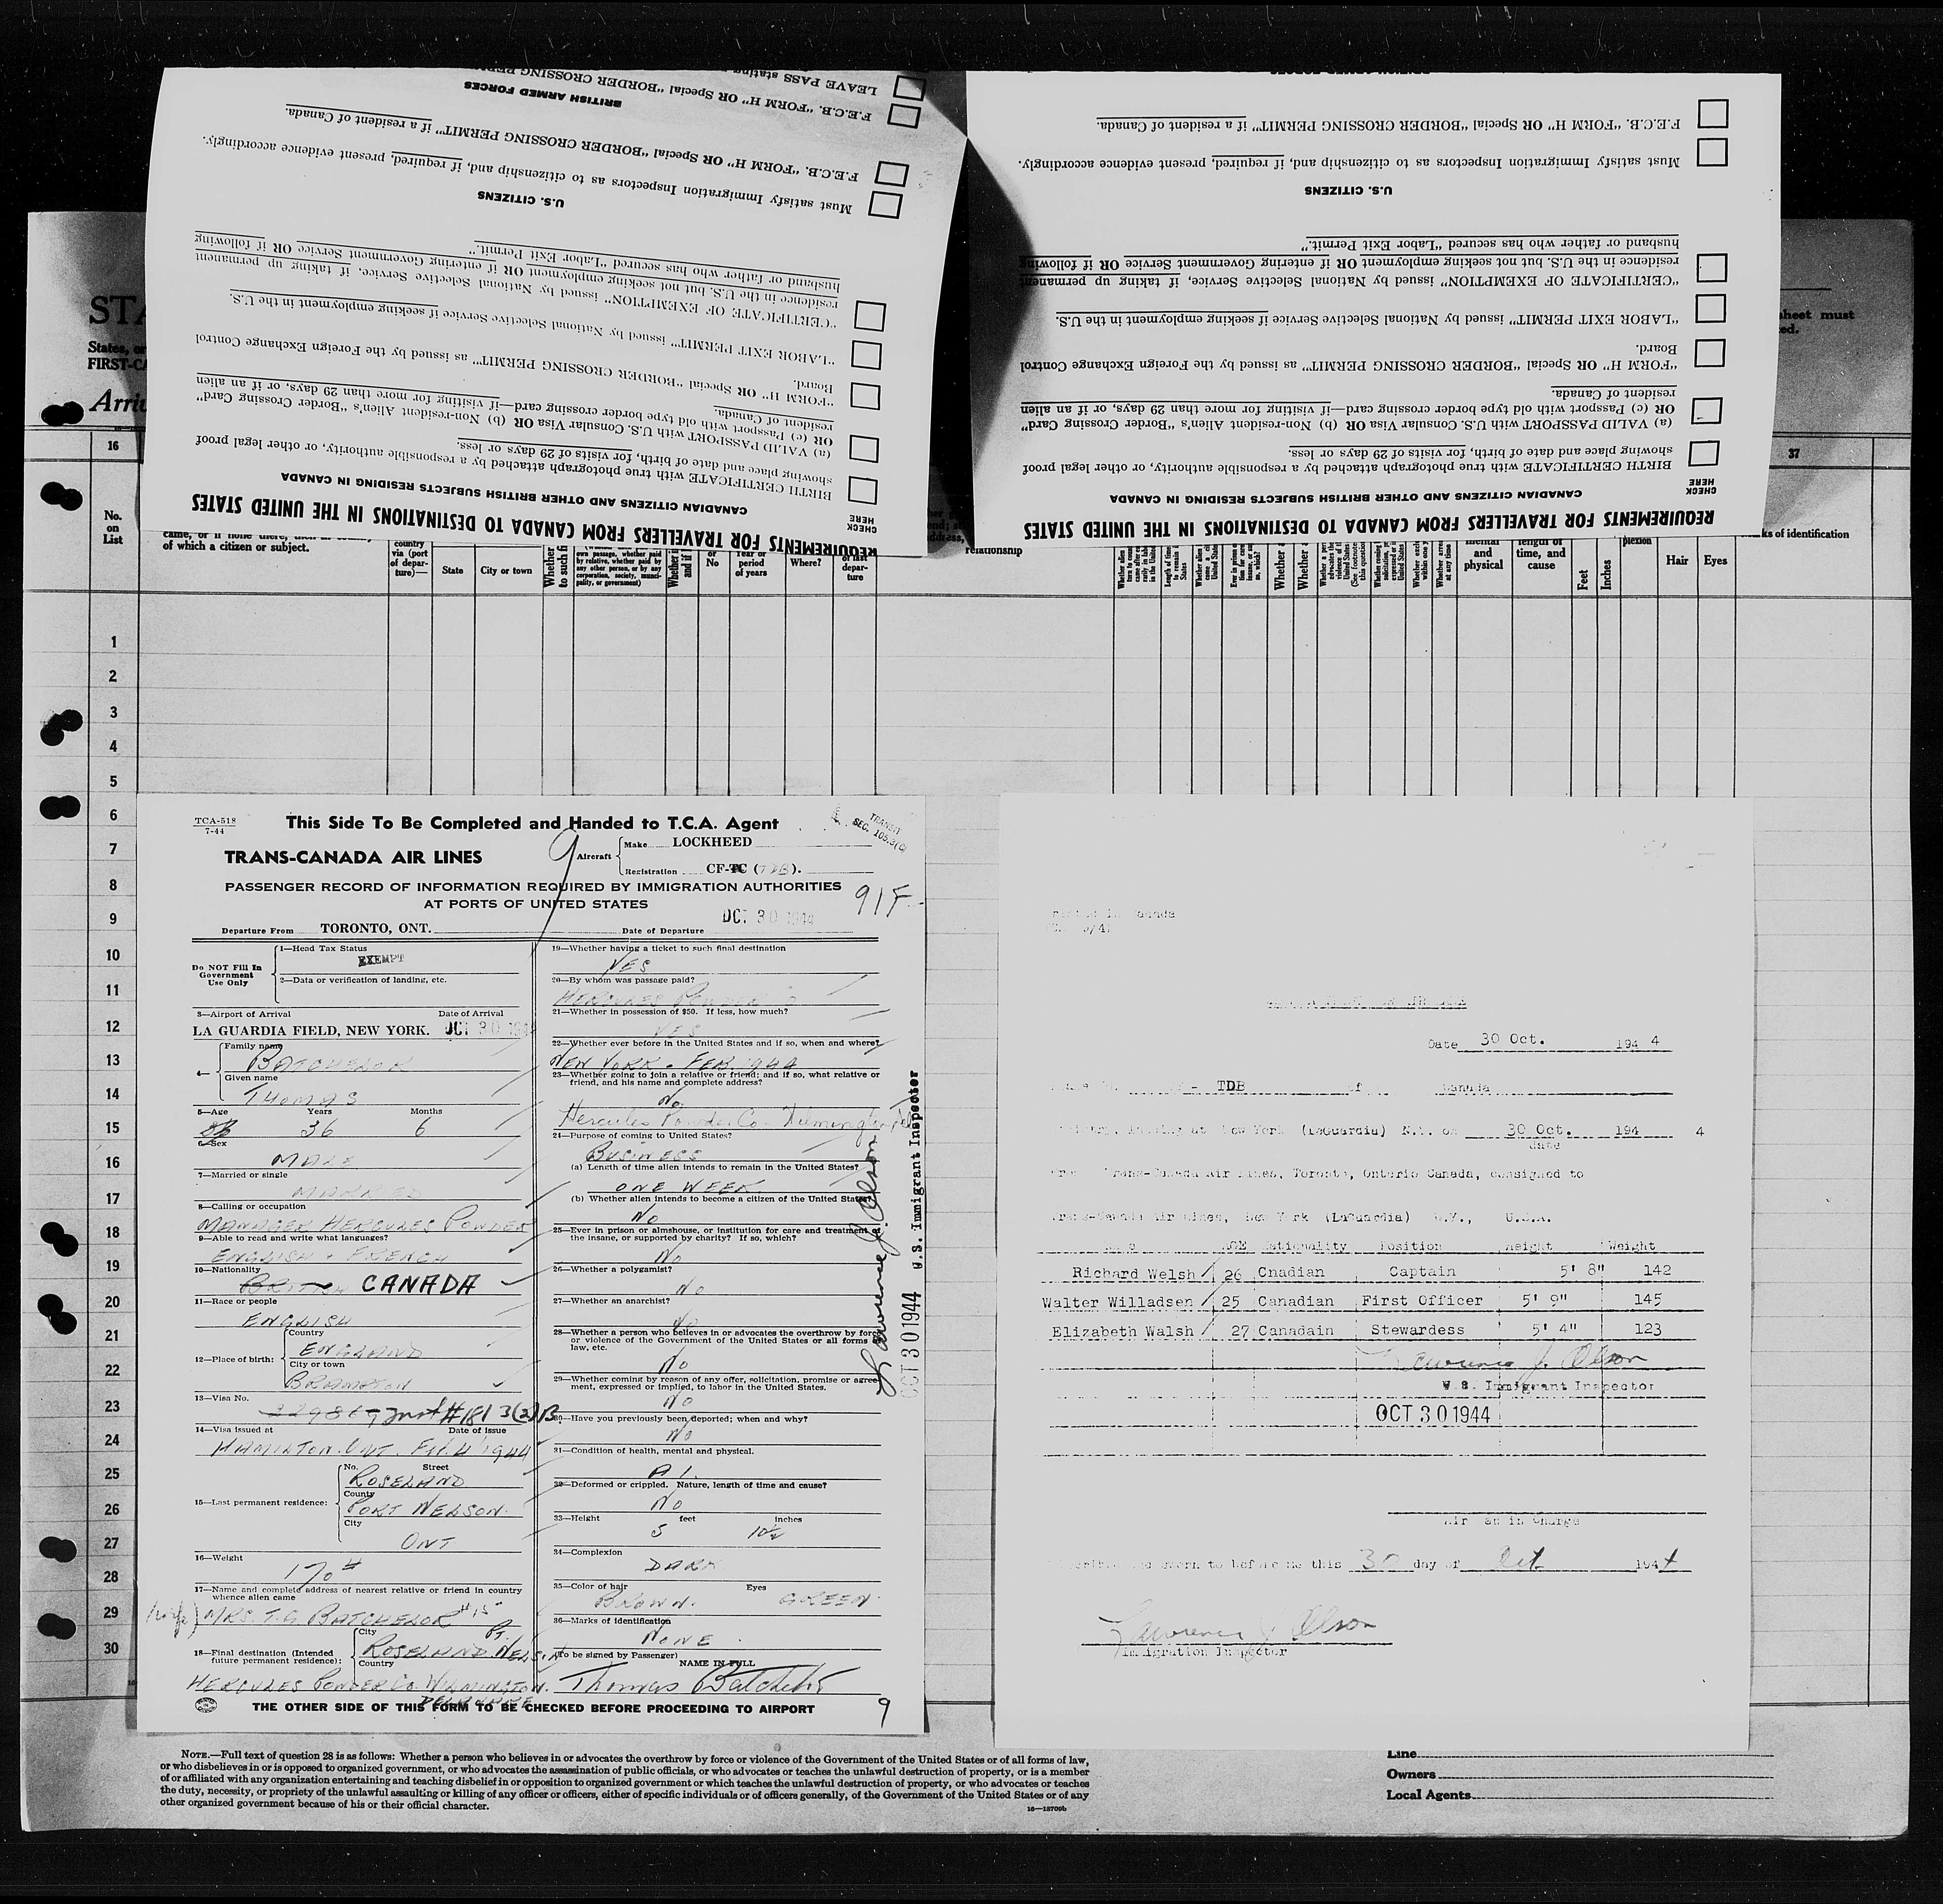 LEAVE PASS stating
F.E.C.B. "FORM H" OR Special "BORDER CROSSING
BRITISH ARMED FORCES
F.E.C.B. "FORM H" OR Special "BORDER CROSSING PERMIT" if a resident of Canada.
Must satisfy Immigration Inspectors as to citizenship and, if required, present evidence accordingly.
U.S. CITIZENS
husband or father who has secured "Labor Exit Permit."
residence in the U.S. but not seeking employment OR if entering Government Service OR if following
"CERTIFICATE OF EXEMPTION" issued by National Selective Service, if taking up permanent
"LABOR EXIT PERMIT" issued by National Selective Service if seeking employment in the U.S.
Board.
"FORM H" OR Special "BORDER CROSSING PERMIT" as issued by the Foreign Exchange Control
resident of Canada.
OR (c) Passport with old type border crossing card—if visiting for more than 29 days, or if an alien
(a) VALID PASSPORT with U.S. Consular Visa OR (b) Non-resident Alien's "Border Crossing Card"
showing place and date of birth, for visits of 29 days or less.
BIRTH CERTIFICATE with true photograph attached by a responsible authority, or other legal proof
CANADIAN CITIZENS AND OTHER BRITISH SUBJECTS RESIDING IN CANADA
CHECK HERE
REQUIREMENTS FOR TRAVELLERS FROM CANADA TO DESTINATIONS IN THE UNITED STATES
F.E.C.B. "FORM H" OR Special "BORDER CROSSING PERMIT" if a resident of Canada.
Must satisfy Immigration Inspectors as to citizenship and, if required, present evidence accordingly.
U.S. CITIZENS
husband or father who has secured "Labor Exit Permit."
residence in the U.S. but not seeking employment OR if entering Government Service OR if following
"CERTIFICATE OF EXEMPTION" issued by National Selective Service, if taking up permanent
"LABOR EXIT PERMIT" issued by National Selective Service if seeking employment in the U.S.
Board.
"FORM H" OR Special "BORDER CROSSING PERMIT" as issued by the Foreign Exchange Control
resident of Canada.
OR (c) Passport with old type border crossing card—if visiting for more than 29 days, or if an alien
(a) VALID PASSPORT with U.S. Consular Visa OR (b) Non-resident Alien's "Border Crossing Card"
showing place and date of birth, for visits of 29 days or less.
BIRTH CERTIFICATE with true photograph attached by a responsible authority, or other legal proof
CANADIAN CITIZENS AND OTHER BRITISH SUBJECTS RESIDING IN CANADA
CHECK HERE
REQUIREMENTS FOR TRAVELLERS FROM CANADA TO DESTINATIONS IN THE UNITED STATES
STA
States, or
FIRST-CA
Arriv
sheet must
16
37
No. on List
of which a citizen or subject.
country via (port of departure)—
State
City or town
or No
Year or period of years
Where?
of last departure
relationship
mental and physical
length of time, and cause
Feet
Inches
Hair
Eyes
ks of identification
1
2
3
4
5
6
7
8
9
10
11
12
13
14
15
16
17
18
19
20
21
22
23
24
25
26
27
28
29
30
TCA-518
7-44
This Side To Be Completed and Handed to T.C.A. Agent
TRANSIT
SEC. 105.3(c)
TRANS-CANADA AIR LINES
9
Aircraft
Make LOCKHEED
Registration CF-TC (TDB).
PASSENGER RECORD OF INFORMATION REQUIRED BY IMMIGRATION AUTHORITIES
AT PORTS OF UNITED STATES
91F
Departure From TORONTO, ONT. Date of Departure OCT 30 1944
Do NOT Fill In Government Use Only
1—Head Tax Status
EXEMPT
2—Data or verification of landing, etc.
3—Airport of Arrival Date of Arrival
LA GUARDIA FIELD, NEW YORK. OCT 30 1944
4— Family name
BATCHELOR
Given name
THOMAS
5—Age Years Months
36 6
6—Sex
MALE
7—Married or single
MARRIED
8—Calling or occupation
MANAGER HERCULES POWDER
9—Able to read and write what languages?
ENGLISH - FRENCH
10—Nationality
BRITISH CANADA
11—Race or people
ENGLISH
12—Place of birth: Country
ENGLAND
City or town
BRAMPTON
13—Visa No.
14—Visa issued at Date of issue
HAMILTON. ONT. Feb. 4 1944
15—Last permanent residence:
No. Street
ROSELAND
County
PORT NELSON.
City
ONT
16—Weight
170 #
17—Name and complete address of nearest relative or friend in country whence alien came
(wife) MRS. T.G. BATCHELOR
18—Final destination (Intended future permanent residence):
City
ROSELAND PT. NELSON
Country
HERCULES POWDER Co. WILMINGTON.
DELAWARE
19—Whether having a ticket to such final destination
YES
20—By whom was passage paid?
HERCULES POWDER Co
21—Whether in possession of $50. If less, how much?
YES
22—Whether ever before in the United States and if so, when and where?
NEW YORK - FEB. 1944
23—Whether going to join a relative or friend; and if so, what relative or friend, and his name and complete address?
No
Hercules Powder Co - Wilmington, Del
24—Purpose of coming to United States?
BUSINESS
(a) Length of time alien intends to remain in the United States?
ONE WEEK.
(b) Whether alien intends to become a citizen of the United States?
No
25—Ever in prison or almshouse, or institution for care and treatment of the insane, or supported by charity? If so, which?
No
26—Whether a polygamist?
No
27—Whether an anarchist?
No
28—Whether a person who believes in or advocates the overthrow by force or violence of the Government of the United States or all forms of law, etc.
No
29—Whether coming by reason of any offer, solicitation, promise or agreement, expressed or implied, to labor in the United States.
No
30—Have you previously been deported; when and why?
No
31—Condition of health, mental and physical.
A1.
32—Deformed or crippled. Nature, length of time and cause?
No
33—Height feet inches
5 10½
34—Complexion
DARK
35—Color of hair Eyes
BROWN. GREEN.
36—Marks of identification
NONE.
(To be signed by Passenger) NAME IN FULL
Thomas Batchelor
THE OTHER SIDE OF THIS FORM TO BE CHECKED BEFORE PROCEEDING TO AIRPORT
9
Lawrence J. Olson
U.S. Immigrant Inspector
OCT 30 1944
Date 30 Oct. 194 4
TDB of Canada
New York (LaGuardia) N.Y. on 30 Oct. 194 4
date
Trans-Canada Air Lines, Toronto, Ontario Canada, consigned to
Trans-Canada Air Lines, New York (LaGuardia) N.Y., U.S.A.
Name AGE Nationality Position Height Weight
Richard Welsh 26 Cnadian Captain 5' 8" 142
Walter Willadsen 25 Canadian First Officer 5' 9" 145
Elizabeth Walsh 27 Canadain Stewardess 5' 4" 123
Lawrence J. Olson
U.S. Immigrant Inspector
OCT 30 1944
sworn to before me this 30 day of Oct 1944
Lawrence J Olson
Immigration Inspector
NOTE.—Full text of question 28 is as follows: Whether a person who believes in or advocates the overthrow by force or violence of the Government of the United States or of all forms of law,
or who disbelieves in or is opposed to organized government, or who advocates the assassination of public officials, or who advocates or teaches the unlawful destruction of property, or is a member
of or affiliated with any organization entertaining and teaching disbelief in or opposition to organized government or which teaches the unlawful destruction of property, or who advocates or teaches
the duty, necessity, or propriety of the unlawful assaulting or killing of any officer or officers, either of specific individuals or of officers generally, of the Government of the United States or of any
other organized government because of his or their official character.
16—18709b
Line
Owners
Local Agents